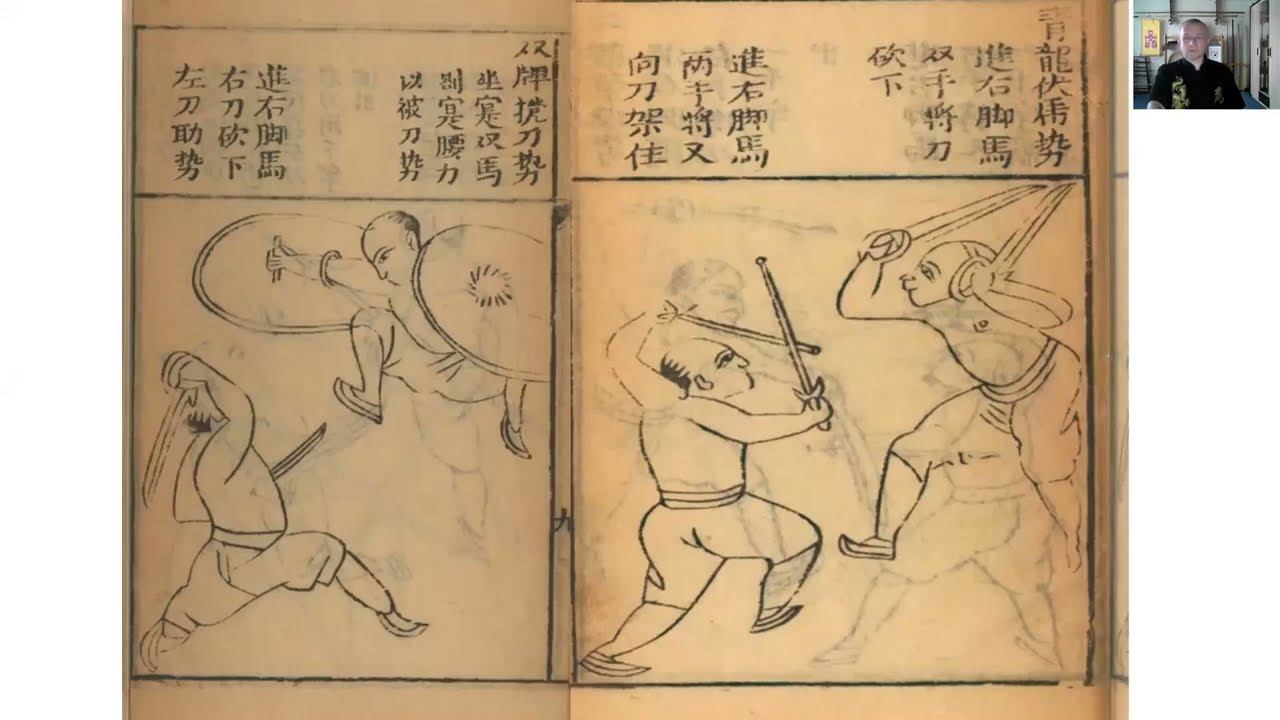 青龍伏虎势
進右脚馬
双手將刀
砍下
進右脚馬
两手將叉
向刀架住
双牌刀势
坐寔双馬
寔腰力
以被刀势
進右脚馬
右刀砍下
左刀助势
九